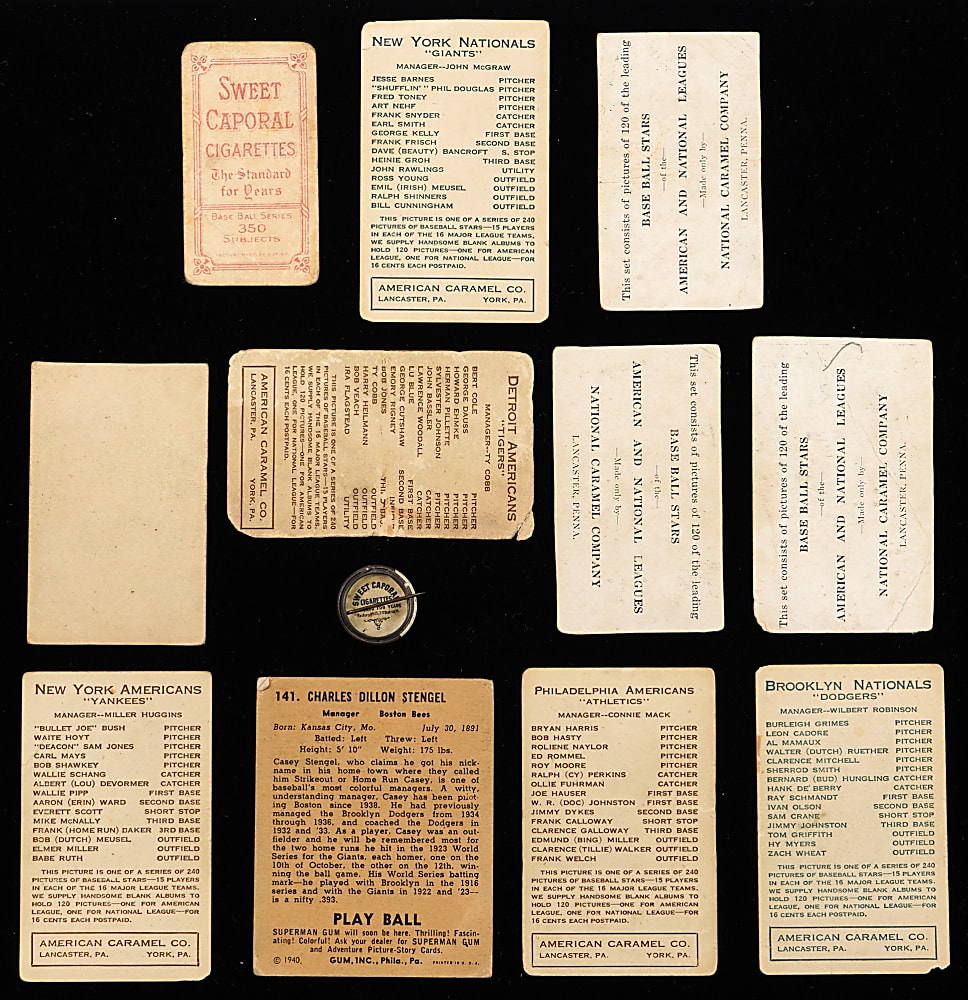 SWEET
CAPORAL
CIGARETTES
The Standard
for Years
BASE BALL SERIES
350
SUBJECTS
NEW YORK NATIONALS
"GIANTS"
MANAGER--JOHN McGRAW
JESSE BARNES PITCHER
"SHUFFLIN'" PHIL DOUGLAS PITCHER
FRED TONEY PITCHER
ART NEHF PITCHER
FRANK SNYDER CATCHER
EARL SMITH CATCHER
GEORGE KELLY FIRST BASE
FRANK FRISCH SECOND BASE
DAVE (BEAUTY) BANCROFT S. STOP
HEINIE GROH THIRD BASE
JOHN RAWLINGS UTILITY
ROSS YOUNG OUTFIELD
EMIL (IRISH) MEUSEL OUTFIELD
RALPH SHINNERS OUTFIELD
BILL CUNNINGHAM OUTFIELD
THIS PICTURE IS ONE OF A SERIES OF 240
PICTURES OF BASEBALL STARS—15 PLAYERS
IN EACH OF THE 16 MAJOR LEAGUE TEAMS.
WE SUPPLY HANDSOME BLANK ALBUMS TO
HOLD 120 PICTURES—ONE FOR AMERICAN
LEAGUE, ONE FOR NATIONAL LEAGUE—FOR
16 CENTS EACH POSTPAID.
AMERICAN CARAMEL CO.
LANCASTER, PA. YORK, PA.
This set consists of pictures of 120 of the leading
BASE BALL STARS
—of the—
AMERICAN AND NATIONAL LEAGUES
—Made only by—
NATIONAL CARAMEL COMPANY
LANCASTER, PENNA.
DETROIT AMERICANS
"TIGERS"
MANAGER--TY COBB
BERT COLE PITCHER
GEORGE DAUSS PITCHER
HOWARD EHMKE PITCHER
HERMAN PILLETTE PITCHER
SYLVESTER JOHNSON PITCHER
JOHN BASSLER CATCHER
LAWRENCE WOODALL CATCHER
LU BLUE FIRST BASE
GEORGE CUTSHAW SECOND BASE
EMORY RIGNEY
BOB JONES
TY COBB OUTFIELD
HARRY HEILMANN OUTFIELD
BOB VEACH OUTFIELD
IRA FLAGSTEAD UTILITY
THIS PICTURE IS ONE OF A SERIES OF 240
PICTURES OF BASEBALL STARS—15 PLAYERS
IN EACH OF THE 16 MAJOR LEAGUE TEAMS.
WE SUPPLY HANDSOME BLANK ALBUMS TO
HOLD 120 PICTURES—ONE FOR AMERICAN
LEAGUE, ONE FOR NATIONAL LEAGUE—FOR
16 CENTS EACH POSTPAID.
AMERICAN CARAMEL CO.
LANCASTER, PA. YORK, PA.
This set consists of pictures of 120 of the leading
BASE BALL STARS
—of the—
AMERICAN AND NATIONAL LEAGUES
—Made only by—
NATIONAL CARAMEL COMPANY
LANCASTER, PENNA.
This set consists of pictures of 120 of the leading
BASE BALL STARS
—of the—
AMERICAN AND NATIONAL LEAGUES
—Made only by—
NATIONAL CARAMEL COMPANY
LANCASTER, PENNA.
SWEET CAPORAL
CIGARETTES
NEW YORK AMERICANS
"YANKEES"
MANAGER--MILLER HUGGINS
"BULLET JOE" BUSH PITCHER
WAITE HOYT PITCHER
"DEACON" SAM JONES PITCHER
CARL MAYS PITCHER
BOB SHAWKEY PITCHER
WALLIE SCHANG CATCHER
ALBERT (LOU) DEVORMER CATCHER
WALLIE PIPP FIRST BASE
AARON (ERIN) WARD SECOND BASE
EVERETT SCOTT SHORT STOP
MIKE McNALLY THIRD BASE
FRANK (HOME RUN) DAKER 3RD BASE
BOB (DUTCH) MEUSEL OUTFIELD
ELMER MILLER OUTFIELD
BABE RUTH OUTFIELD
THIS PICTURE IS ONE OF A SERIES OF 240
PICTURES OF BASEBALL STARS—15 PLAYERS
IN EACH OF THE 16 MAJOR LEAGUE TEAMS.
WE SUPPLY HANDSOME BLANK ALBUMS TO
HOLD 120 PICTURES—ONE FOR AMERICAN
LEAGUE, ONE FOR NATIONAL LEAGUE—FOR
16 CENTS EACH POSTPAID.
AMERICAN CARAMEL CO.
LANCASTER, PA. YORK, PA.
141. CHARLES DILLON STENGEL
Manager Boston Bees
Born: Kansas City, Mo. July 30, 1891
Batted: Left Threw: Left
Height: 5' 10" Weight: 175 lbs.
Casey Stengel, who claims he got his nick-
name in his home town where they called
him Strikeout or Home Run Casey, is one of
baseball's most colorful managers. A witty,
understanding manager, Casey has been pilot-
ing Boston since 1938. He had previously
managed the Brooklyn Dodgers from 1934
through 1936, and coached the Dodgers in
1932 and '33. As a player, Casey was an out-
fielder and he will be remembered most for
the two home runs he hit in the 1923 World
Series for the Giants, each homer, one on the
10th of October, the other on the 12th, win-
ning the ball game. His World Series batting
mark—he played with Brooklyn in the 1916
series and with the Giants in 1922 and '23—
is a nifty .393.
PLAY BALL
SUPERMAN GUM will soon be here. Thrilling! Fascin-
ating! Colorful! Ask your dealer for SUPERMAN GUM
and Adventure Picture-Story Cards.
© 1940, GUM, INC., Phila., Pa. PRINTED IN U. S. A.
PHILADELPHIA AMERICANS
"ATHLETICS"
MANAGER--CONNIE MACK
BRYAN HARRIS PITCHER
BOB HASTY PITCHER
ROLIENE NAYLOR PITCHER
ED ROMMEL PITCHER
ROY MOORE PITCHER
RALPH (CY) PERKINS CATCHER
OLLIE FUHRMAN CATCHER
JOE HAUSER FIRST BASE
W. R. (DOC) JOHNSTON FIRST BASE
JIMMY DYKES SECOND BASE
FRANK CALLOWAY SHORT STOP
CLARENCE GALLOWAY THIRD BASE
EDMUND (BING) MILLER OUTFIELD
CLARENCE (TILLIE) WALKER OUTFIELD
FRANK WELCH OUTFIELD
THIS PICTURE IS ONE OF A SERIES OF 240
PICTURES OF BASEBALL STARS—15 PLAYERS
IN EACH OF THE 16 MAJOR LEAGUE TEAMS.
WE SUPPLY HANDSOME BLANK ALBUMS TO
HOLD 120 PICTURES—ONE FOR AMERICAN
LEAGUE, ONE FOR NATIONAL LEAGUE—FOR
16 CENTS EACH POSTPAID.
AMERICAN CARAMEL CO.
LANCASTER, PA. YORK, PA.
BROOKLYN NATIONALS
"DODGERS"
MANAGER--WILBERT ROBINSON
BURLEIGH GRIMES PITCHER
LEON CADORE PITCHER
AL MAMAUX PITCHER
WALTER (DUTCH) RUETHER PITCHER
CLARENCE MITCHELL PITCHER
SHERROD SMITH PITCHER
BERNARD (BUD) HUNGLING CATCHER
HANK DE'BERRY CATCHER
RAY SCHMANDT FIRST BASE
IVAN OLSON SECOND BASE
SAM CRANE SHORT STOP
JIMMY JOHNSTON THIRD BASE
TOM GRIFFITH OUTFIELD
HY MYERS OUTFIELD
ZACH WHEAT OUTFIELD
THIS PICTURE IS ONE OF A SERIES OF 240
PICTURES OF BASEBALL STARS—15 PLAYERS
IN EACH OF THE 16 MAJOR LEAGUE TEAMS.
WE SUPPLY HANDSOME BLANK ALBUMS TO
HOLD 120 PICTURES—ONE FOR AMERICAN
LEAGUE, ONE FOR NATIONAL LEAGUE—FOR
16 CENTS EACH POSTPAID.
AMERICAN CARAMEL CO.
LANCASTER, PA. YORK, PA.